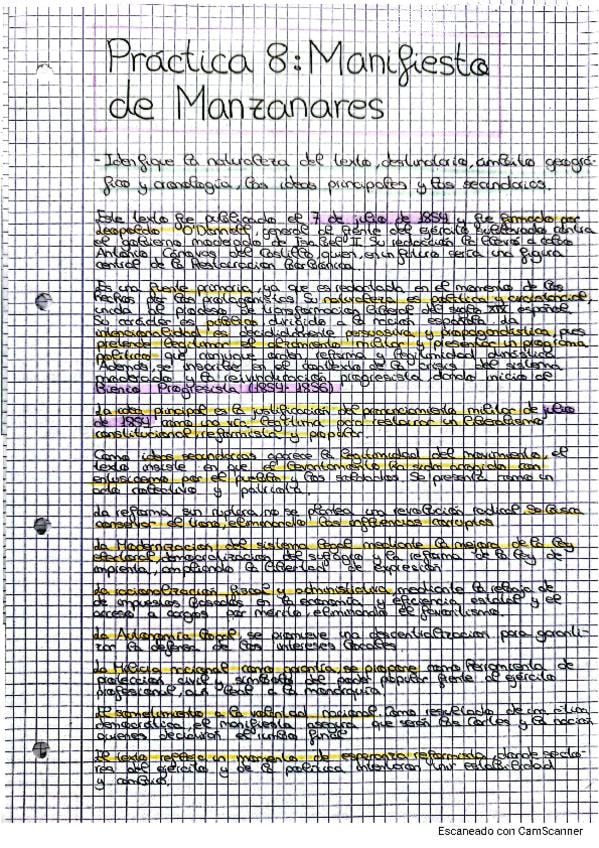 Práctica 8: Manifiesto
de Manzanares
- Idenfique la naturaleza del texto, destinatario, ámbito geográ-
fico y cronología, las ideas principales y las secundarias.
Este texto fue publicado el 7 de julio de 1854 y fue firmado por
Leopoldo O'Donnell, general al frente del ejército sublevado contra
el gobierno moderado de Isabel II. Su redacción la llevó a cabo
Antonio Cánovas del Castillo, quien, en un futuro sería una figura
central de la Restauración Borbónica.
Es una fuente primaria, ya que es redactada en el momento de los
hechos por los protagonistas. Su naturaleza es política y circunstancial,
proceso de transformación liberal del siglo XIX español.
Su carácter es público dirigido a la nación española. La
intencionalidad es decididamente persuasiva y propagandística, pues
pretende legitimar el alzamiento militar y presentar un programa
político que conjugue orden, reforma y legitimidad dinástica.
Además, se inscribe en el contexto de la crisis del sistema
moderado y la reivindicación progresista, dando inicio al
Bienio Progresista (1854-1856)
La idea principal es la justificación del pronunciamiento militar de julio
de 1854 como una vía legítima para restaurar un liberalismo
constitucional, reformista y popular.
Como ideas secundarias aparece la legitimidad del movimiento, el
texto insiste en que el levantamiento ha sido acogido con
entusiasmo por el pueblo y los soldados. Se presenta como un
acto colectivo y patriota.
La reforma sin ruptura, no se plantea una revolución radical. Se busca
conservar el trono, eliminando las influencias corruptas
La Modernización del sistema legal mediante la mejora de la ley
electoral, democratización del sufragio y la reforma de la ley de
imprenta, ampliando la libertad de expresión
La racionalización fiscal y administrativa, mediante la rebaja de
de impuestos basados en la economía y eficiencia estatal y el
acceso a cargos por mérito, eliminando el favoritismo.
La Autonomía local, se promueve una descentralización para garanti-
zar la defensa de los intereses locales
La Milicia nacional como garantía, se propone como herramienta de
protección civil y símbolo del poder popular frente al ejército
profesional, aun leal a la monarquía
El sometimiento a la voluntad nacional. Como resultado de
democrática, el manifiesto asegura que serán las Cortes y la nación
quienes decidirán el final
El texto refleja un momento de esperanza reformista, donde secto-
res del ejército y de la política intentaron unir estabilidad
y cambio.
Escaneado con CamScanner